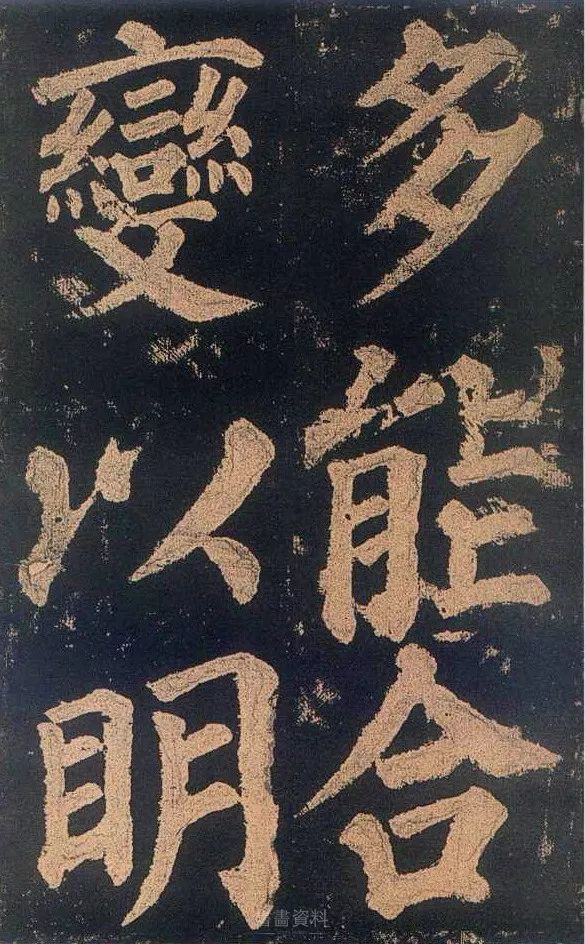 多能合
變以明
書畫資料